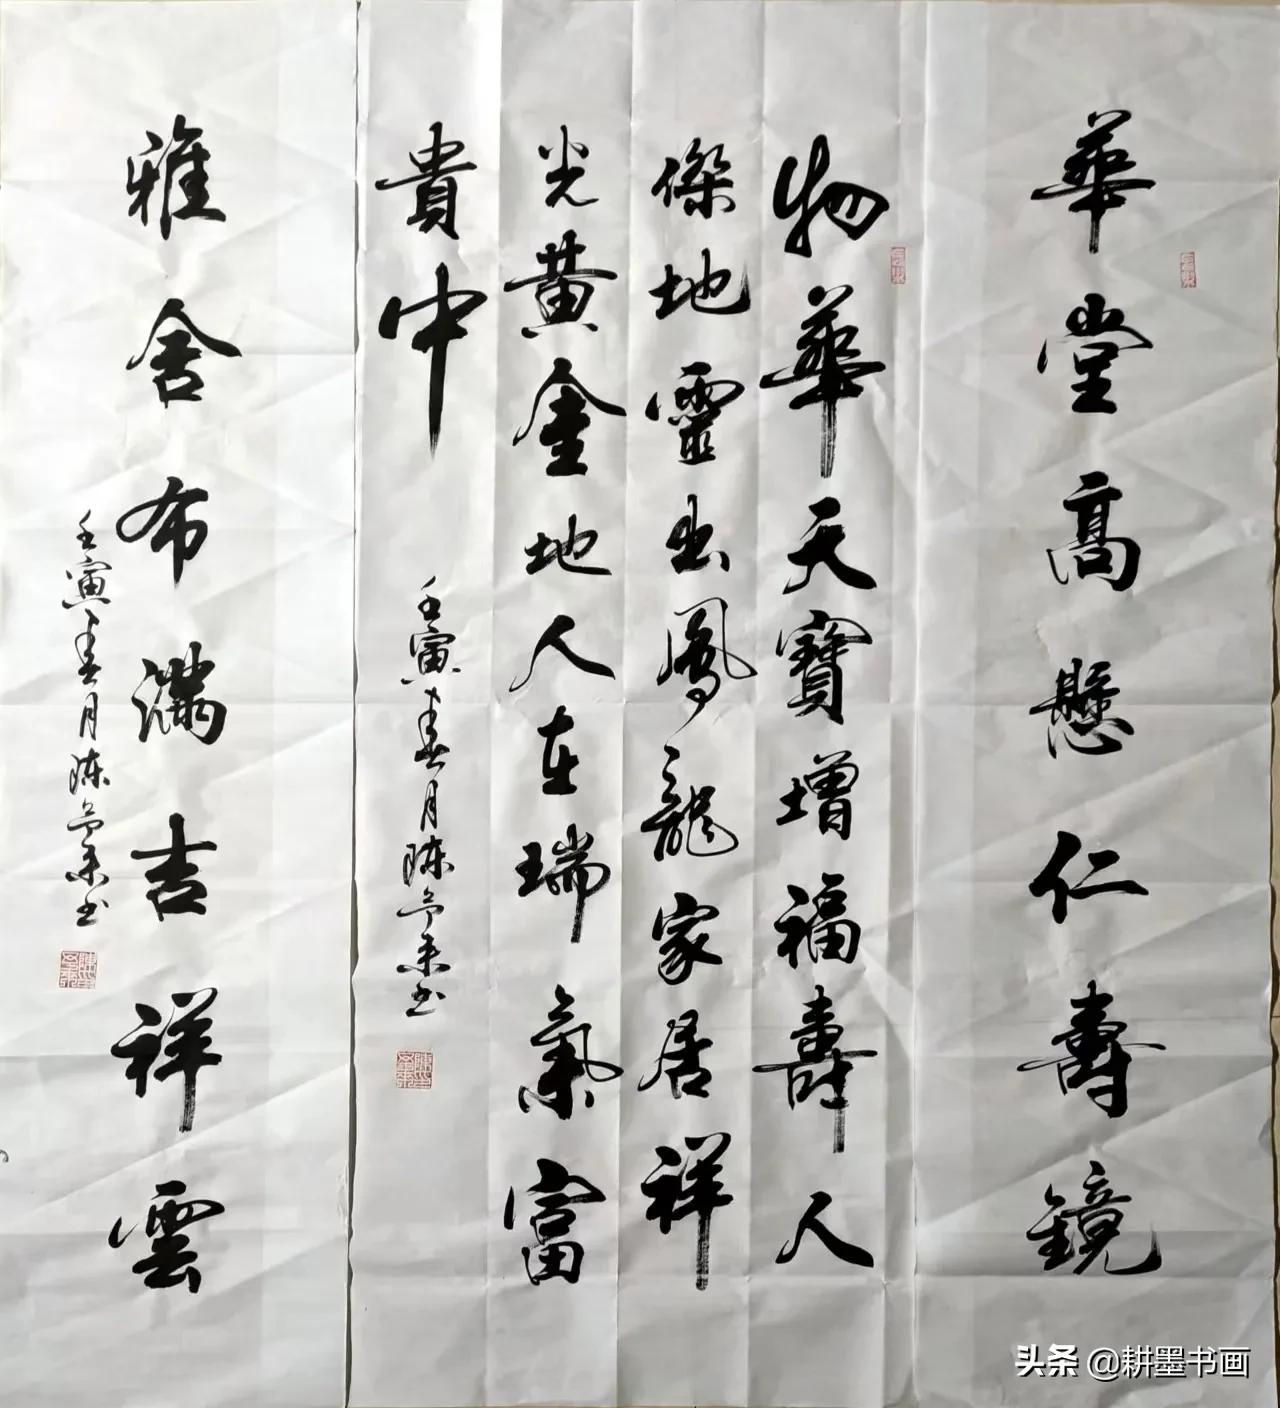 華堂高懸仁壽鏡
物華天寶增福壽人
傑地靈出鳳龍家居祥
光黃金地人在瑞氣富
貴中
壬寅春月陈
雅舍布滿吉祥雲
壬寅春月陈
头条 @耕墨书画